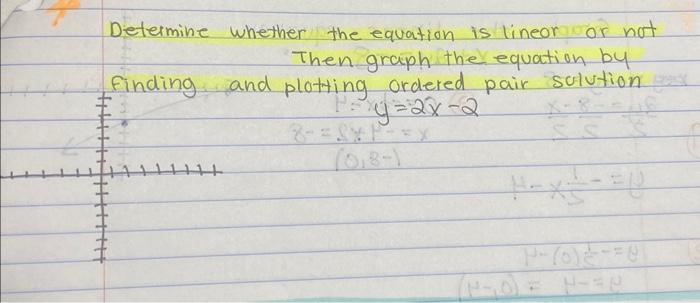 Determine whether the equation is linear or not
Then graph the equation by
finding and plotting ordered pair solution
y=2x-2